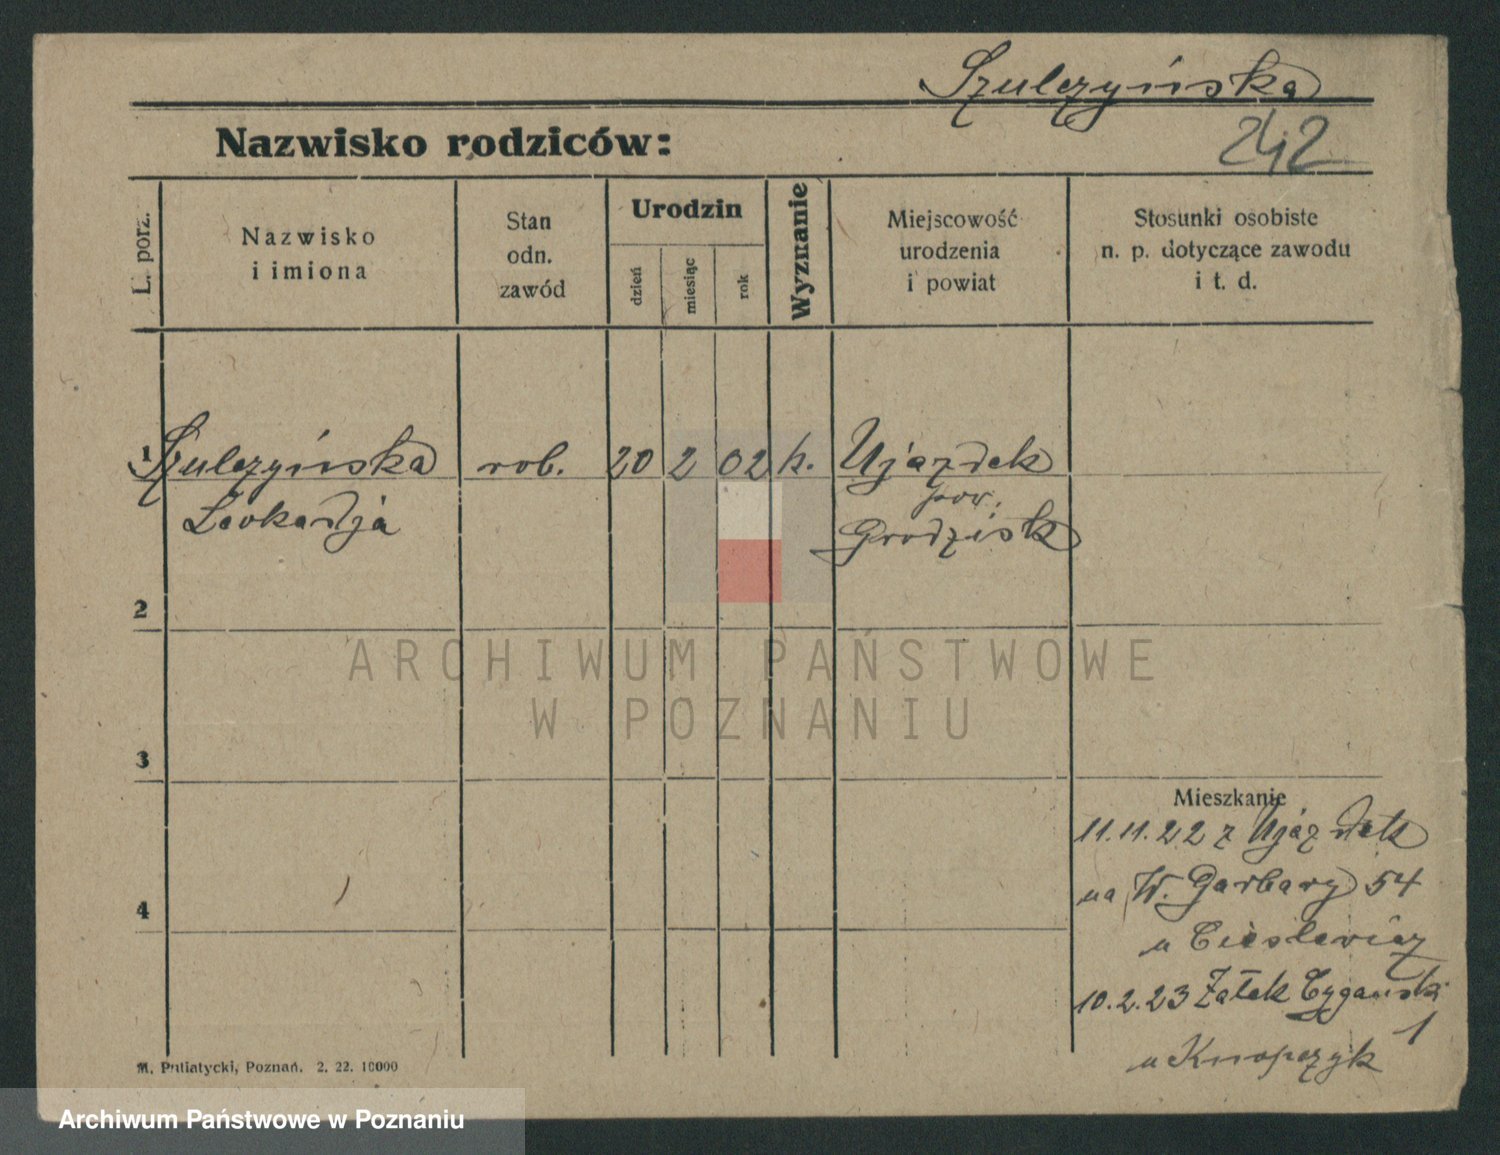 Szulczyńska
242
Nazwisko rodziców:
L. porz.
Nazwisko
i imiona
Stan
odn.
zawód
Urodzin
dzień
miesiąc
rok
Wyznanie
Miejscowość
urodzenia
i powiat
Stosunki osobiste
n. p. dotyczące zawodu
i t. d.
1 Szulczyńska rob. 20 2 02 k. Ujazdek
pow.
Leokadja Grodzisk
2
ARCHIWUM PAŃSTWOWE
W POZNANIU
3
Mieszkanie
11.11.22 z Ujazdek
4
na W. Garbary 54
u
10.2.23 Zatek Cygański
1
u Knopczyk
M. Putiatycki, Poznań. 2. 22. 10000
Archiwum Państwowe w Poznaniu